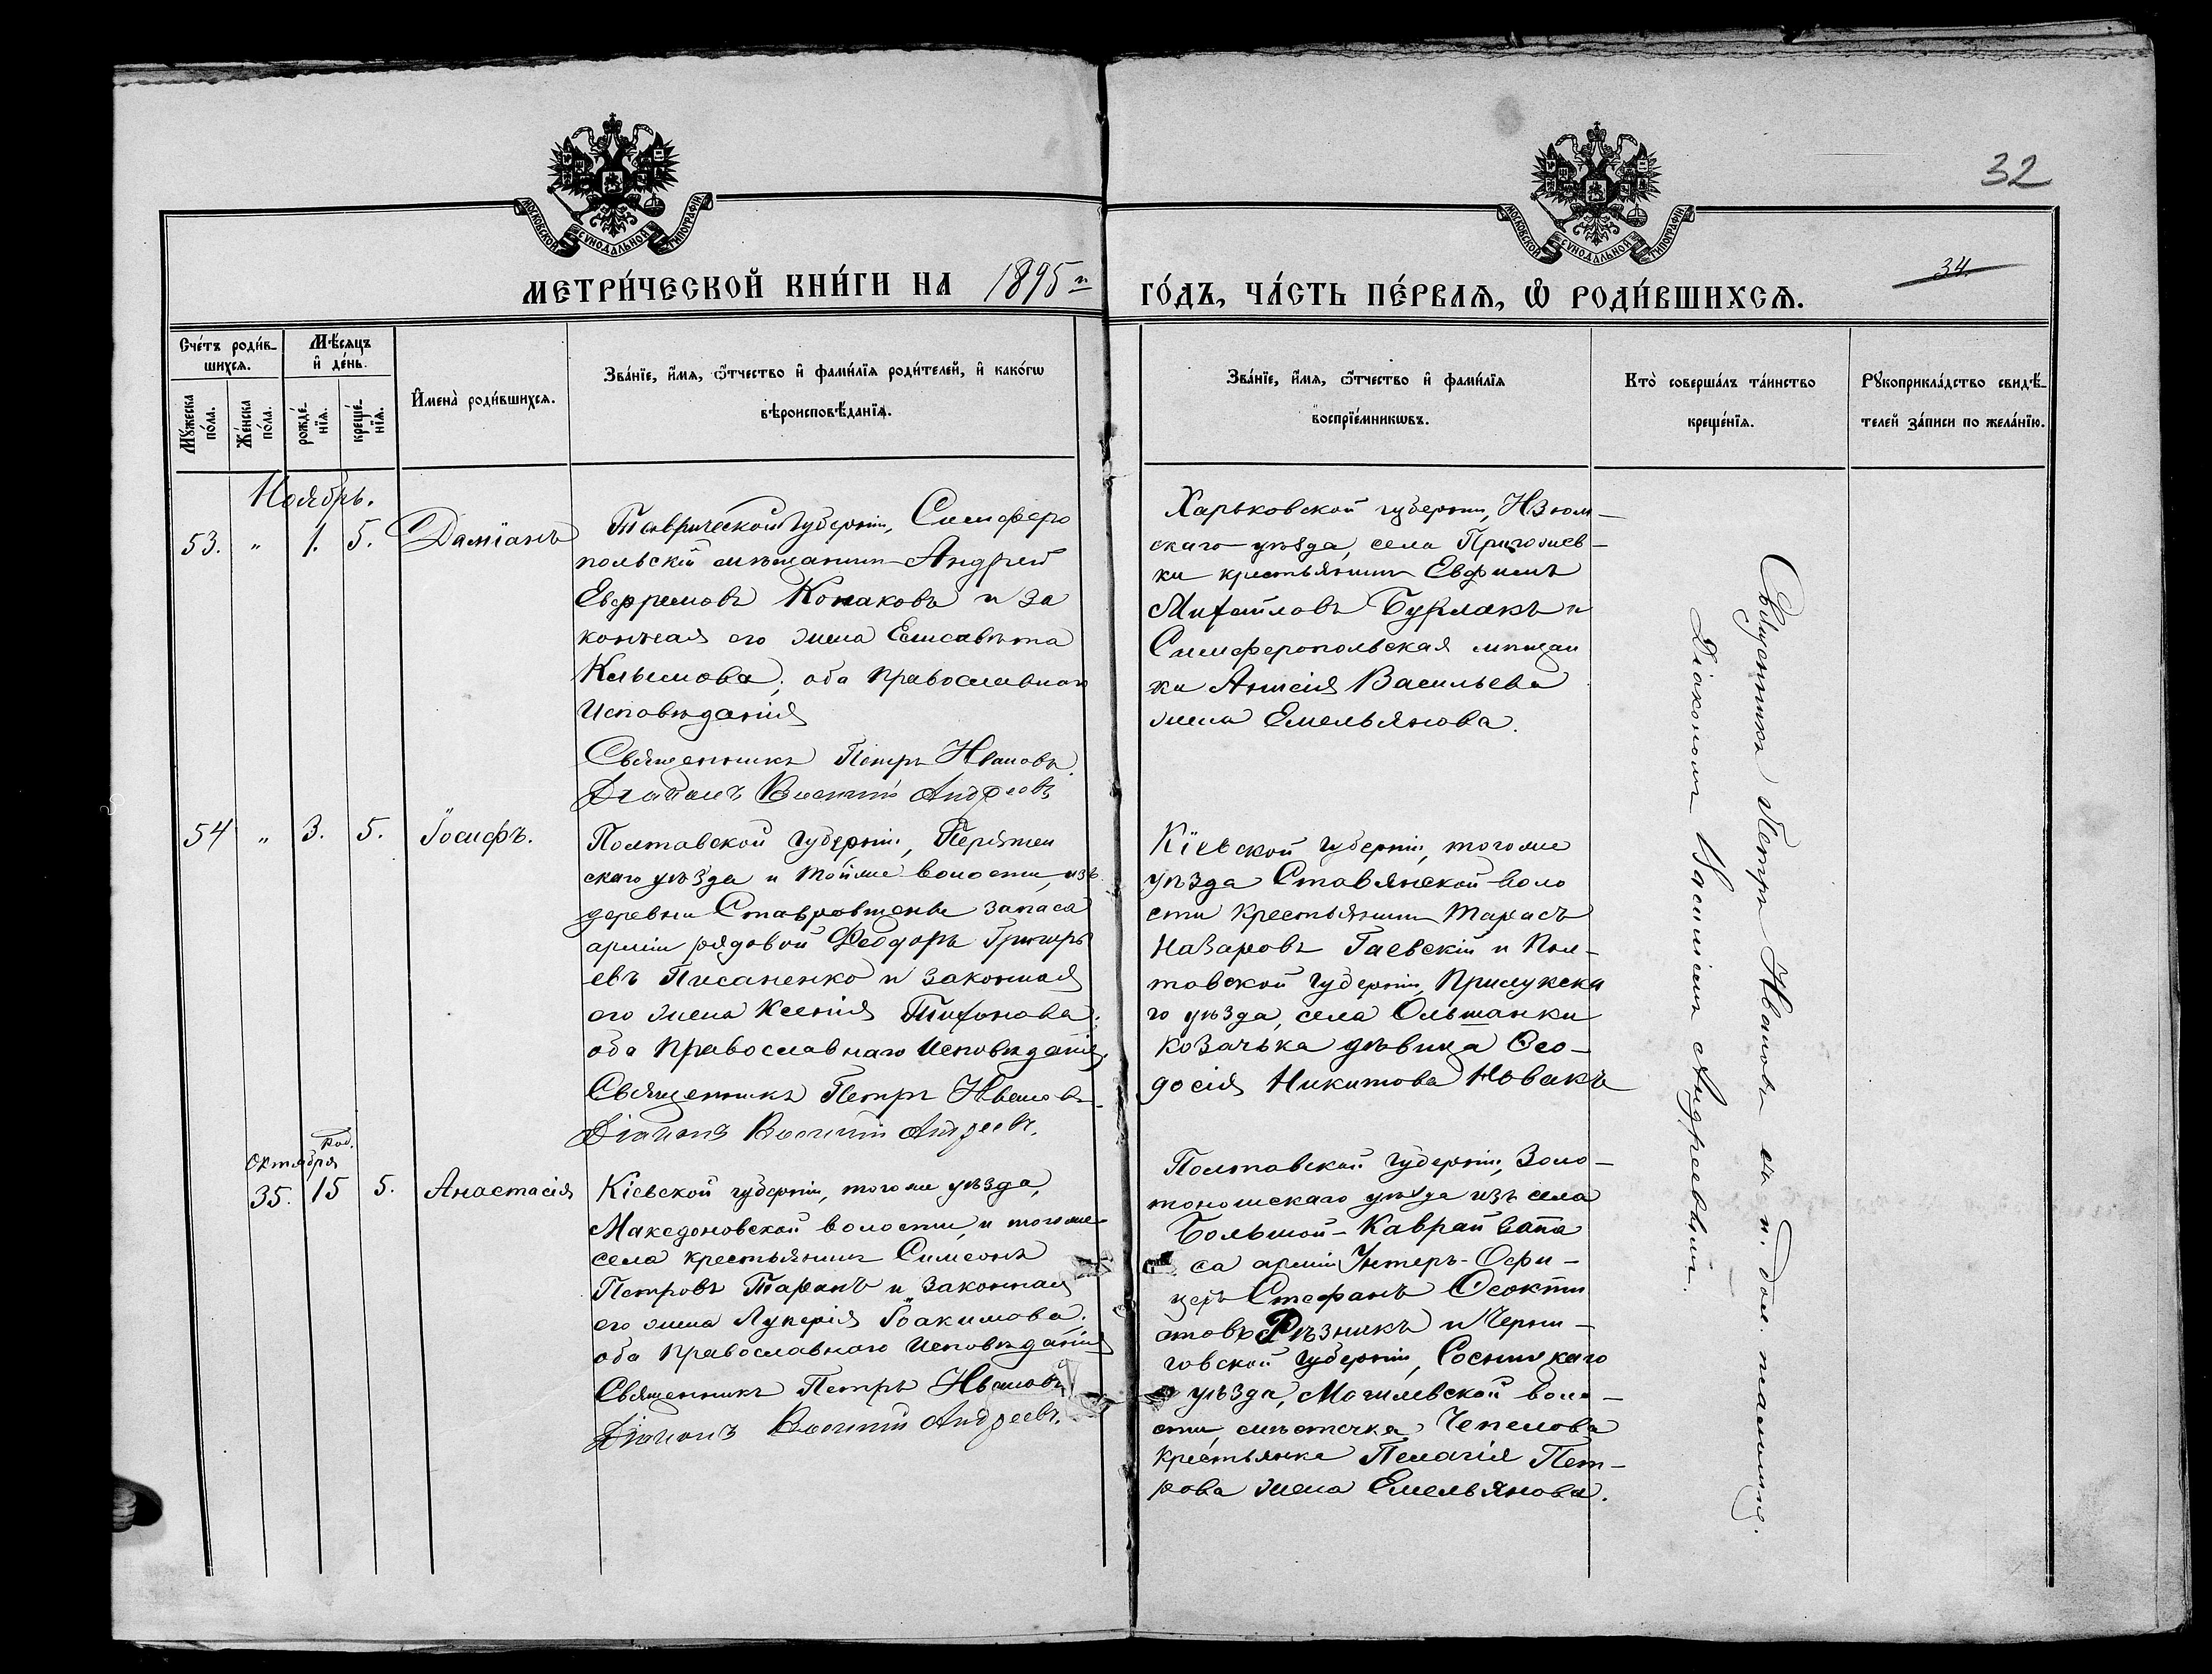 32
34.
МОСКОВСКОЙ СУНОДАЛЬНОЙ ТИПОГРАФІИ
МОСКОВСКОЙ СУНОДАЛЬНОЙ ТИПОГРАФІИ
МЕТРИ́ЧЕСКОЙ КНИ́ГИ НА 1895 го́дъ, ча́сть пе́рваѧ, ѡ҆ роди́вшихсѧ.
Сче́тъ роди́в-
шихсѧ.
Мѣ́сѧцъ
и҆ де́нь.
Мꙋ́жеска
по́ла.
Же́нска
по́ла.
рожде́-
нїѧ.
креще́-
нїѧ.
И҆мена̀ роди́вшихсѧ.
Зва́нїе, и҆́мѧ, ѻ҆́тчество и҆ фами́лїѧ роди́телей, и҆ како́гѡ
вѣроисповѣ́данїѧ.
Зва́нїе, и҆́мѧ, ѻ҆́тчество и҆ фами́лїѧ
воспрїе́мникѡвъ.
Кто̀ соверша́лъ та́инство
креще́нїѧ.
Рꙋкоприкла́дство свидѣ́-
телей за́писи по жела́нїю.
Ноябрь.
53. " 1. 5. Даміанъ
Таврической губерніи, Симферо
польскій мѣщанинъ Андрей
Евфремовъ Конаковъ и за
конная его жена Елисавѣта
Климова; оба православнаго
Исповѣданія
Священникъ Петръ Ивановъ.
Діаконъ Василій Андреевъ
Харьковской губерніи, Изюм-
скаго уѣзда, села
ки крестьянинъ Евфимъ
Михайловъ Бурлакъ и
Симферопольская мѣщан
ка Анисія Васильева
жена Емельянова.
54 " 3. 5. Іосифъ.
Полтавской губерніи, Пирятин
скаго уѣзда и тойже волости, изъ
деревни запаса
арміи рядовой Ѳеодоръ Григорь
евъ Писаненко и законная
его жена Ксенія Тихонова;
оба Православнаго Исповѣданія,
Священникъ Петръ Ивановъ.
Діаконъ Василій Андреевъ.
Кіевской губерніи, тогоже
уѣзда Ставянской воло
сти крестьянинъ Тарасъ
Назаровъ Гаевскій и Пол-
тавской губерніи, Прилукска
го уѣзда, села Ольшанки
козачька дѣвица Ѳео-
досія Никитова Новакъ
Октября
род.
35. 15 5. Анастасія
Кіевской губерніи, тогоже уѣзда,
Македоновской волости, и тогоже
села крестьянинъ Симеонъ
Петровъ Таранъ и законная
его жена Лукерія Іоакимова;
оба Православнаго Исповѣданія
Священникъ Петръ Ивановъ
Діаконъ Василій Андреевъ.
Полтавской губерніи, Золо-
тоношскаго уѣзда изъ села
Большой-Каврай запа
са арміи Унтеръ-Офи-
церъ Стефанъ Ѳеокти
стовъ Рѣзникъ и Черни-
говской губерніи, Сосницкаго
уѣзда, Могилевской воло-
сти, мѣстечка
крестьянка Пелагія Пет-
рова жена Емельянова.
Священникъ Петръ Ивановъ съ и. дол. псаломщ.
Діакономъ Василіемъ Андреевымъ.